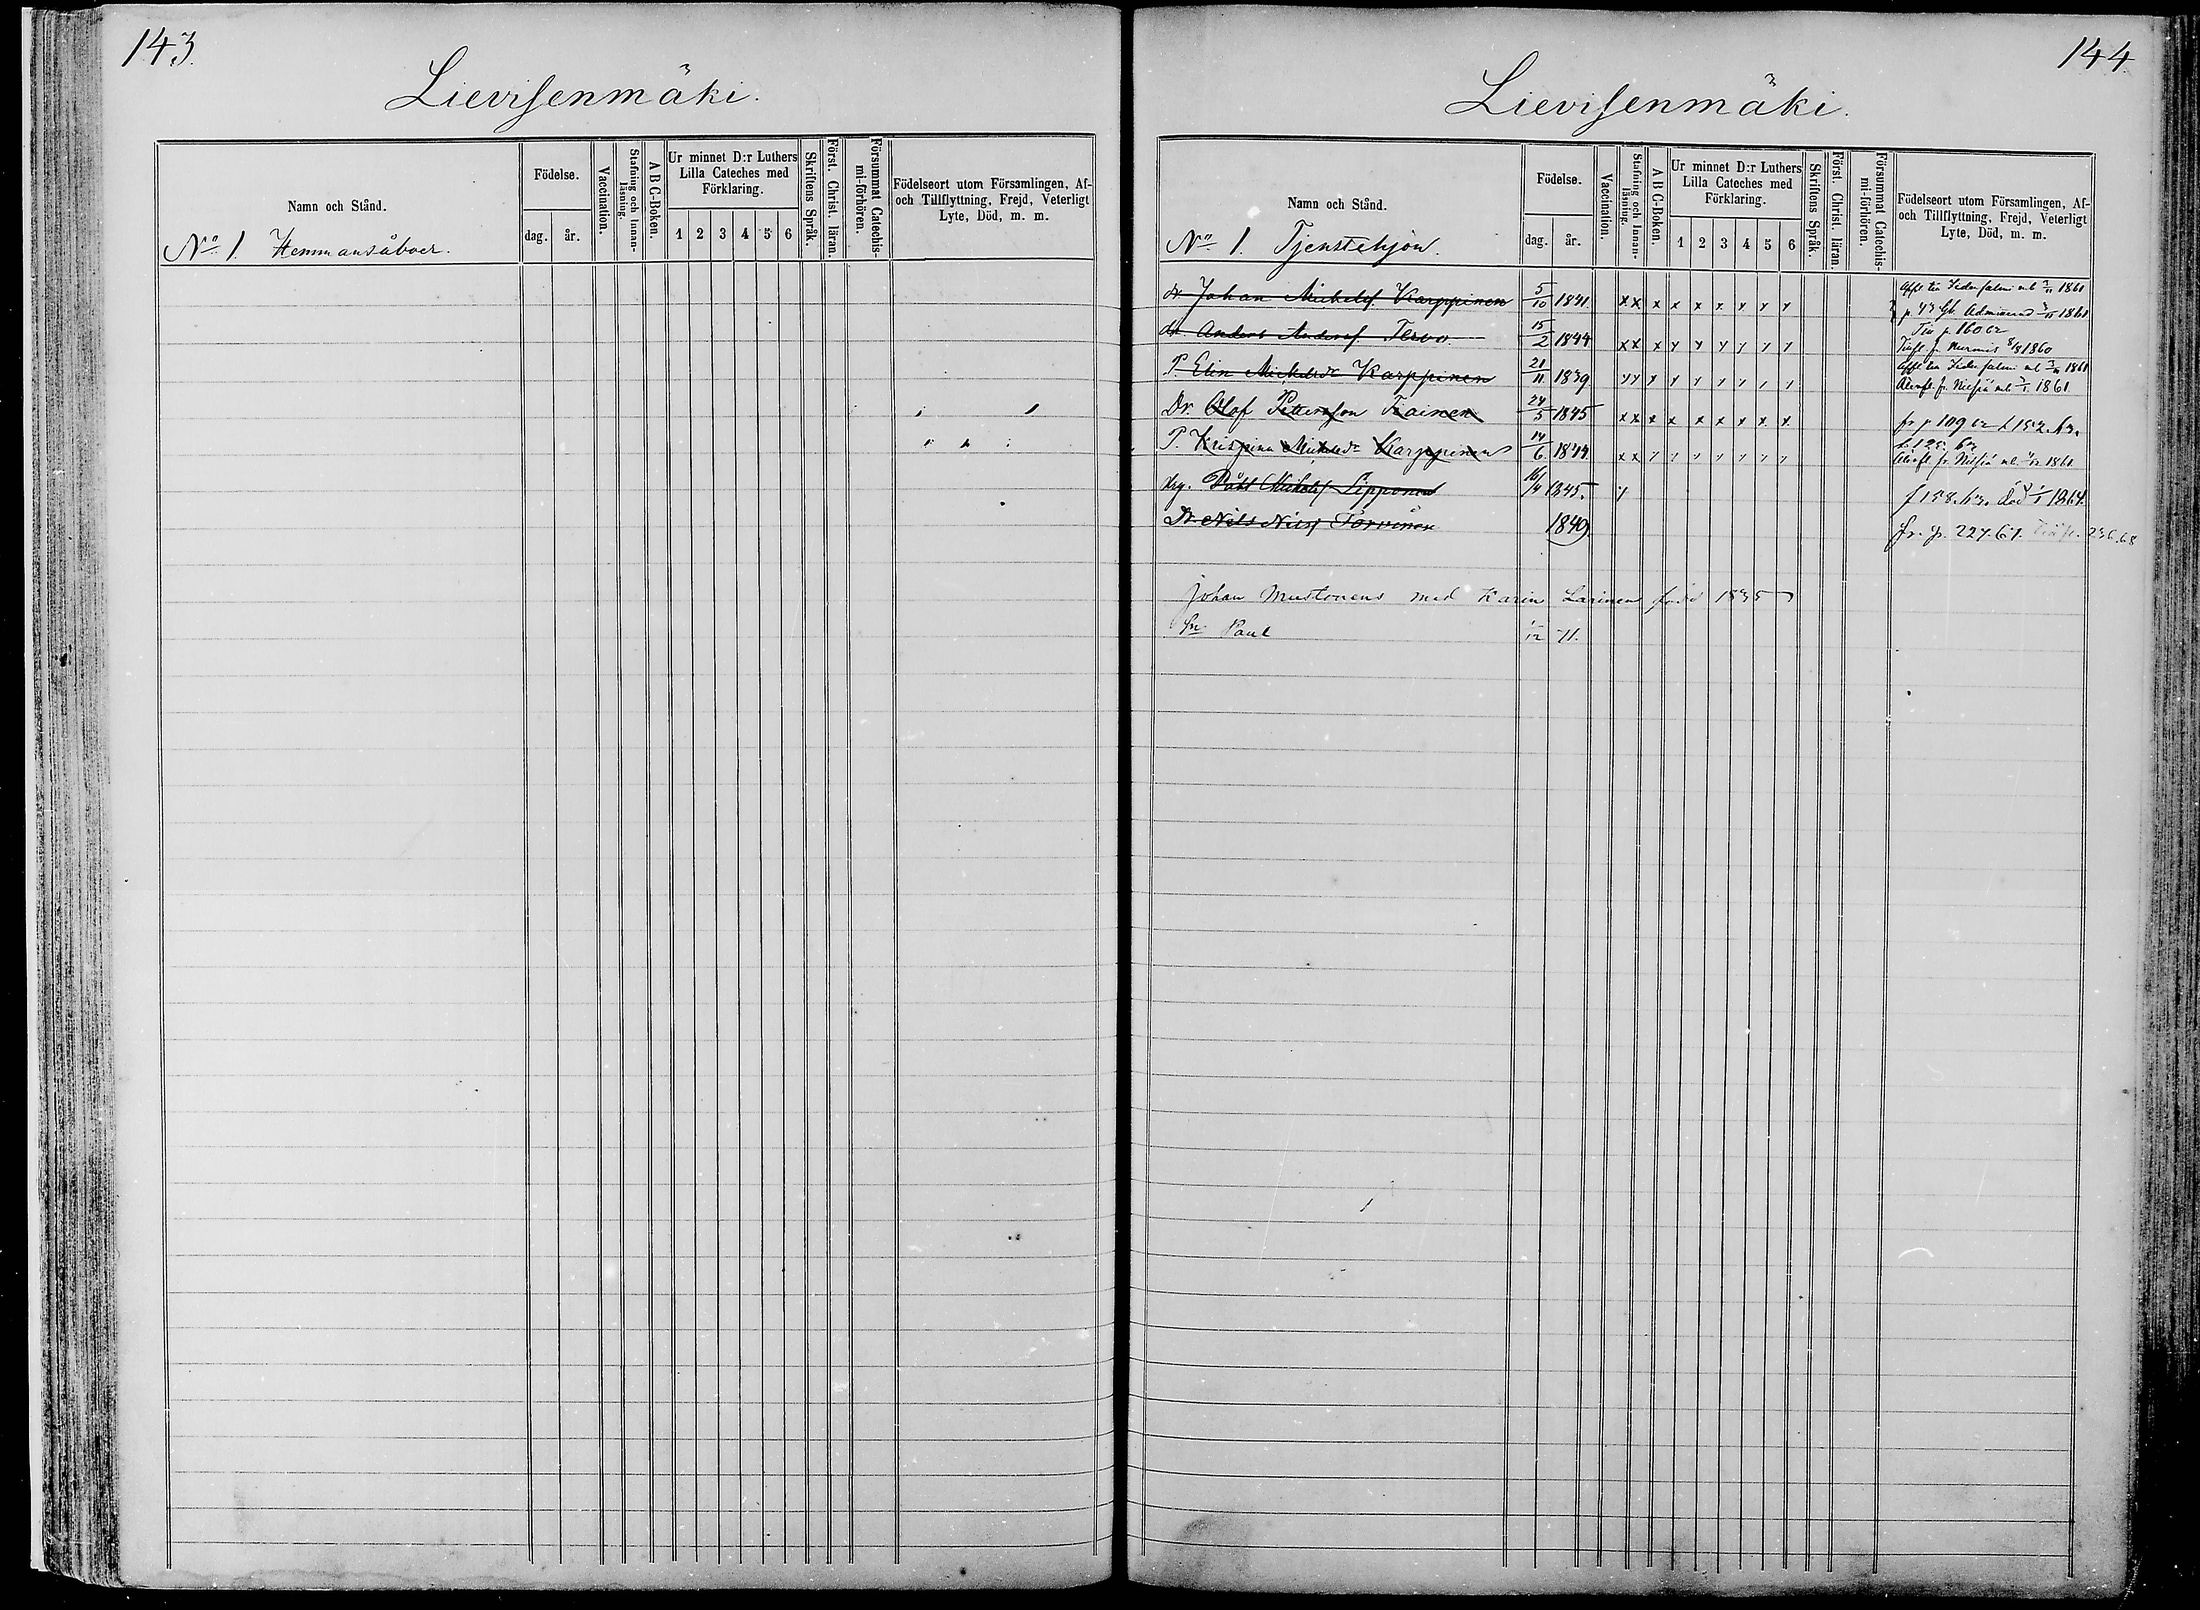 143
Lievisenmäki.
Namn och Stånd.
Födelse.
dag.
år.
Vaccination.
Stafning och Innan-
läsning.
A B C-Boken.
Ur minnet D:r Luthers
Lilla Cateches med
Förklaring.
1 2 3 4 5 6
Skriftens Språk.
Först. Christ. läran.
Försummat Catechis-
mi-förhören.
Födelseort utom Församlingen, Af-
och Tillflyttning, Frejd, Veterligt
Lyte, Död, m. m.
No 1. Hemmansåboer.
144
Lievisenmäki.
Namn och Stånd.
Födelse.
dag.
år.
Vaccination.
Stafning och Innan-
läsning.
A B C-Boken.
Ur minnet D:r Luthers
Lilla Cateches med
Förklaring.
1 2 3 4 5 6
Skriftens Språk.
Först. Christ. läran.
Försummat Catechis-
mi-förhören.
Födelseort utom Församlingen, Af-
och Tillflyttning, Frejd, Veterligt
Lyte, Död, m. m.
No 1. Tjenstehjon.
dr Johan Michelsf. Karppinen 5/10 1841 x x x x x x x x x 1861
p. 43 1861
dr Anders Andersf Tervo 15/2 1844 x x x x x x x x x p. 160
fr. Nurmis 8/8 1860
P. Elin Michelsdr Karppinen 21/11 1839 x x x x x x x x x 1861
fr. Nilsiä 1861
Dr. Olof Pettersson Tiainen 24/5 1845 x x x x x x x x x fr p 109
P. Krispina Michelsdr Karppinen 14/6 1844 x x x x x x x x x fr. Nilsiä 1861
drg. Påhl Michelsf Lipponen 16/4 1845. x f 158. 63. död 1/1 1864.
Dr Nils Nilsf Torvinen 1849 fr. p. 227. 67. 236.68
Johan Mustonens med Karin Larinen född 1835
Paul 1/12 71.